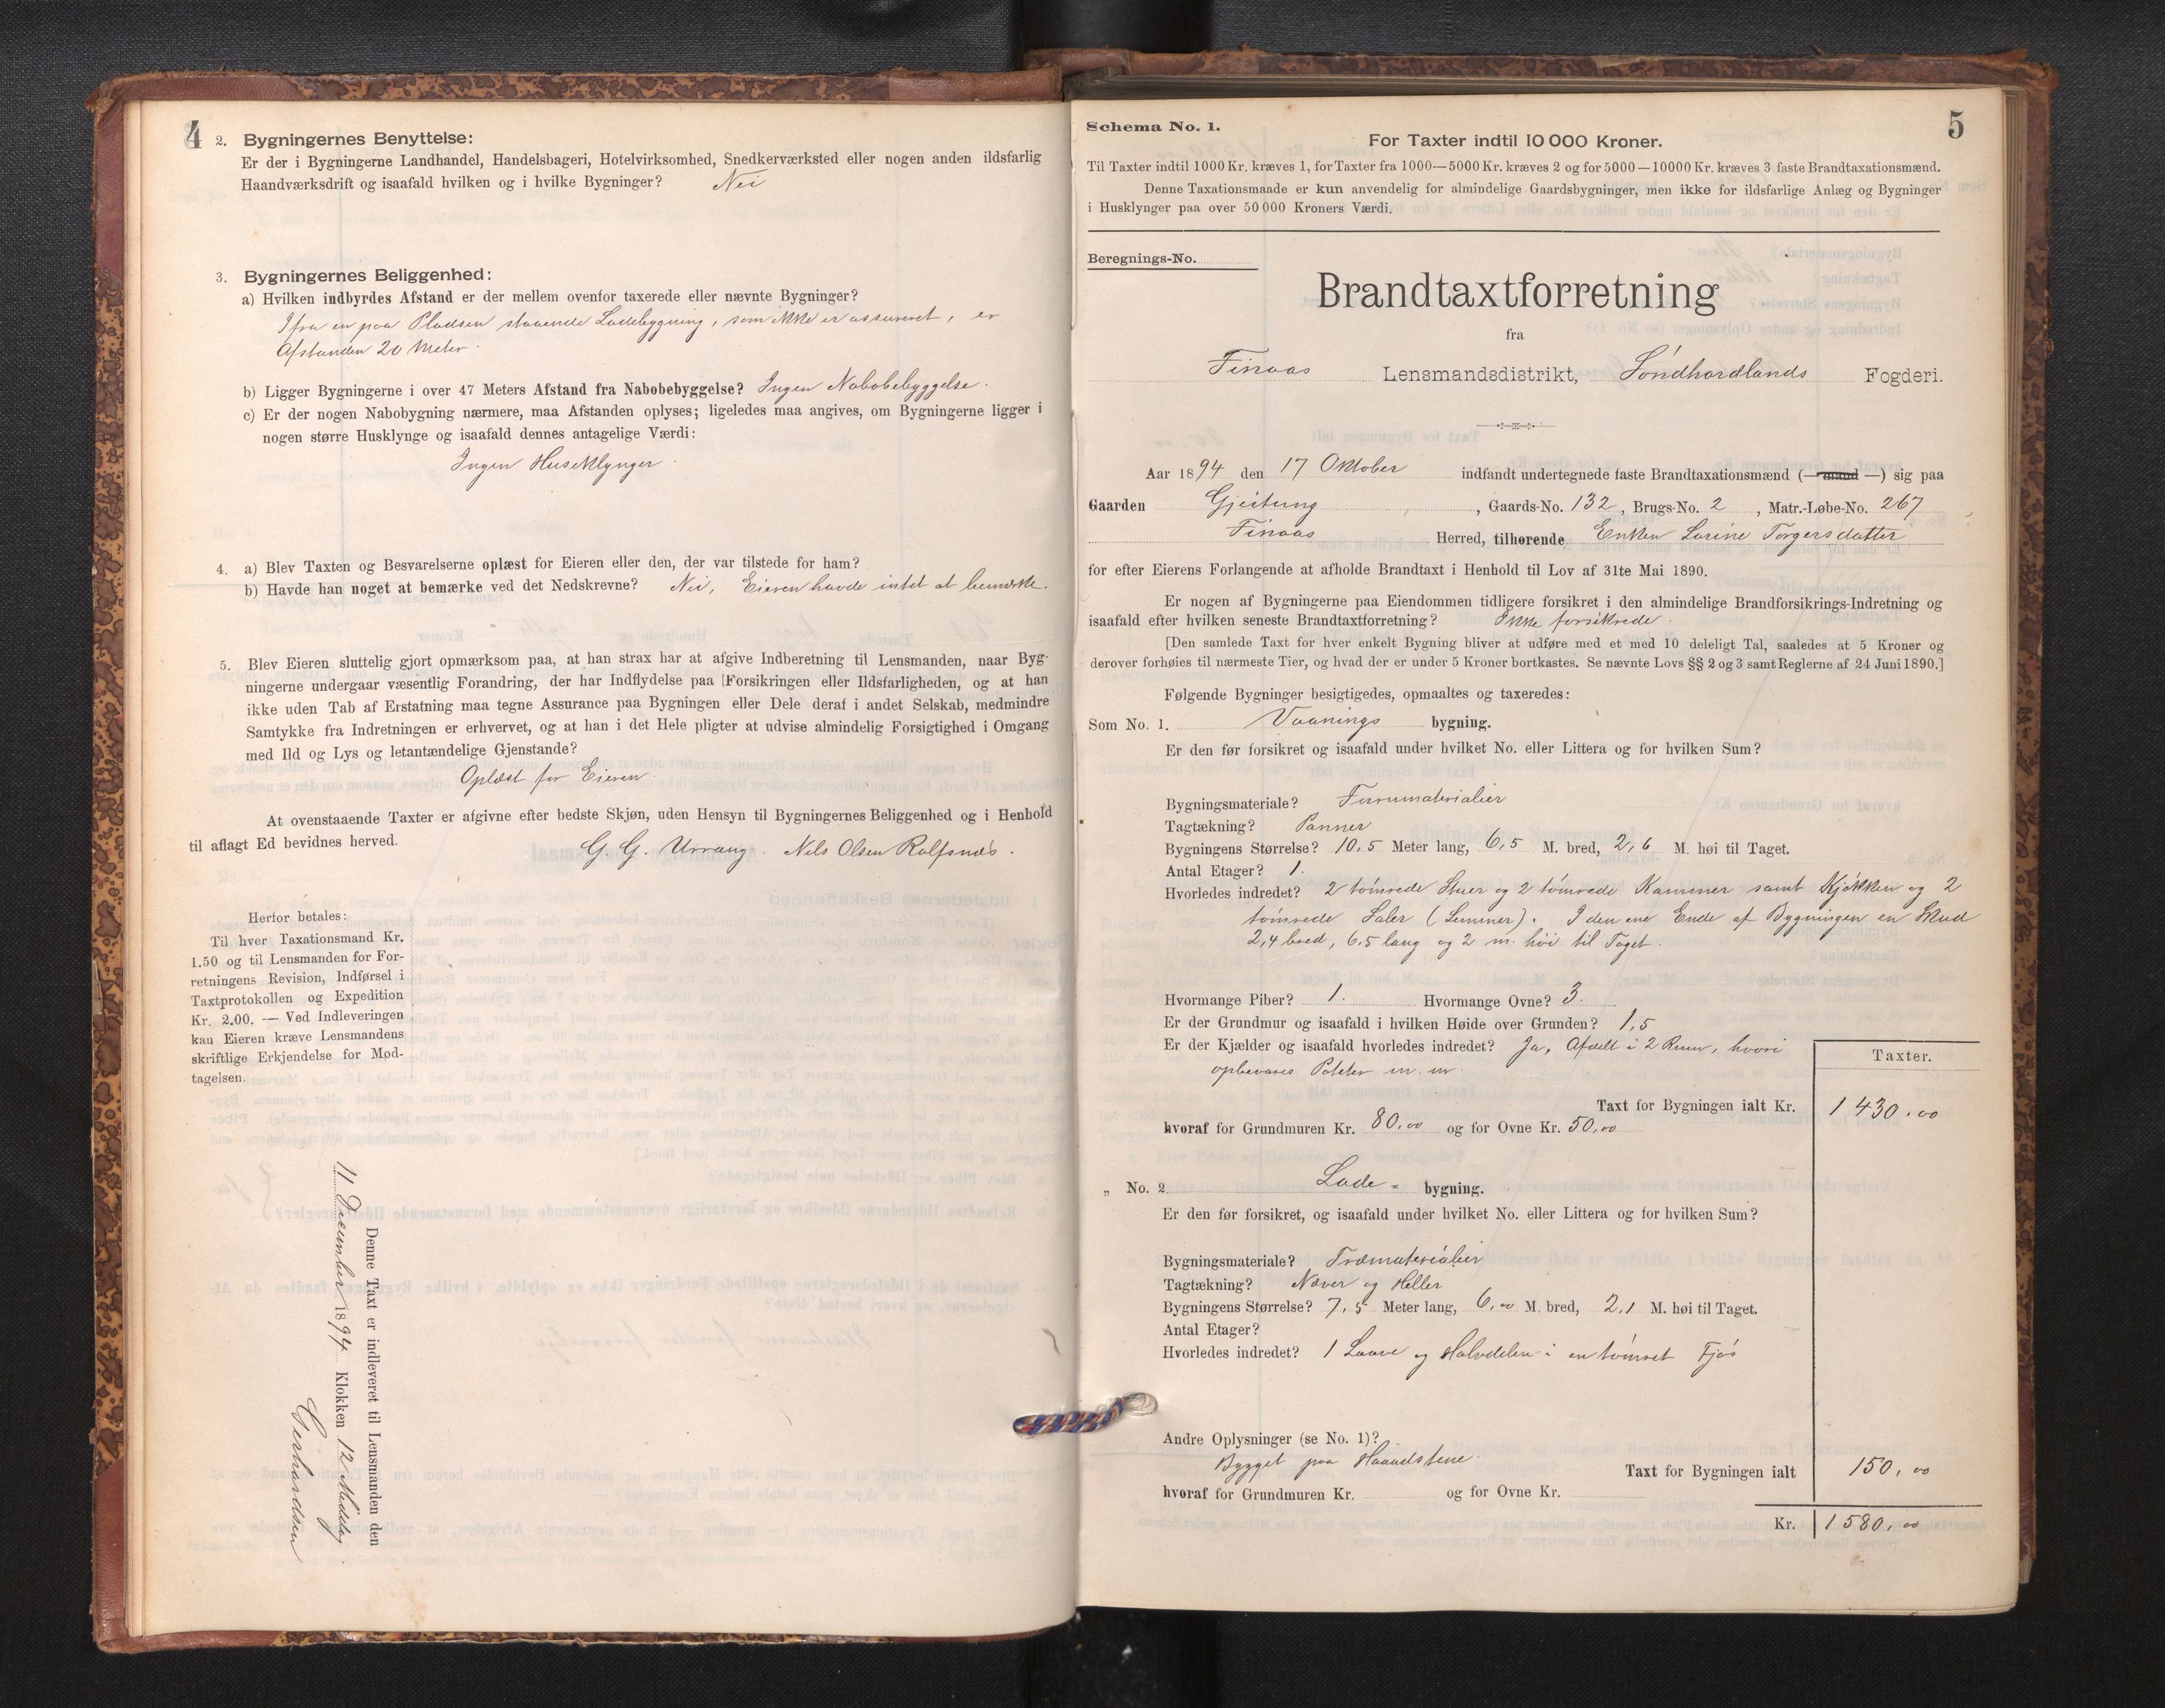 4
2. Bygningernes Benyttelse:
Er der i Bygningerne Landhandel, Handelsbageri, Hotelvirksomhed, Snedkerværksted eller nogen anden ildsfarlig
Haandværksdrift og isaafald hvilken og i hvilke Bygninger? Nei
3. Bygningernes Beliggenhed:
a) Hvilken indbyrdes Afstand er der mellem ovenfor taxerede eller nævnte Bygninger?
Ifra en paa Pladsen staaende Ladebygning, som ikke er assureret, er
Afstanden 20 Meter.
b) Ligger Bygningerne i over 47 Meters Afstand fra Nabobebyggelse? Ingen Nabobebyggelse.
c) Er der nogen Nabobygning nærmere, maa Afstanden oplyses; ligeledes maa angives, om Bygningerne ligger i
nogen større Husklynge og isaafald dennes antagelige Værdi:
Ingen Huseklynger.
4. a) Blev Taxten og Besvarelserne oplæst for Eieren eller den, der var tilstede for ham?
b) Havde han noget at bemærke ved det Nedskrevne? Nei, Eieren havde intet at bemærke.
5. Blev Eieren sluttelig gjort opmærksom paa, at han strax har at afgive Indberetning til Lensmanden, naar Byg-
ningerne undergaar væsentlig Forandring, der har Indflydelse paa Forsikringen eller Ildsfarligheden, og at han
ikke uden Tab af Erstatning maa tegne Assurance paa Bygningen eller Dele deraf i andet Selskab, medmindre
Samtykke fra Indretningen er erhvervet, og at han i det Hele pligter at udvise almindelig Forsigtighed i Omgang
med Ild og Lys og letantændelige Gjenstande?
Oplæst for Eieren.
At ovenstaaende Taxter er afgivne efter bedste Skjøn, uden Hensyn til Bygningernes Beliggenhed og i Henhold
til aflagt Ed bevidnes herved.
G. G. Urrang. Nils Olsen Rolfsnes.
Herfor betales:
Til hver Taxationsmand Kr.
1.50 og til Lensmanden for For-
retningens Revision, Indførsel i
Taxtprotokollen og Expedition
Kr. 2.00. — Ved Indleveringen
kan Eieren kræve Lensmandens
skriftlige Erkjendelse for Mod-
tagelsen.
Denne Taxt er indleveret til Lensmanden den
11 December 1894 Klokken 12 Middag.
Gerhardsen
5
Schema No. 1.
For Taxter indtil 10 000 Kroner.
Til Taxter indtil 1000 Kr. kræves 1, for Taxter fra 1000—5000 Kr. kræves 2 og for 5000—10000 Kr. kræves 3 faste Brandtaxationsmænd.
Denne Taxationsmaade er kun anvendelig for almindelige Gaardsbygninger, men ikke for ildsfarlige Anlæg og Bygninger
i Husklynger paa over 50 000 Kroners Værdi.
Beregnings-No.
Brandtaxtforretning
fra
Finaas Lensmandsdistrikt, Søndhordlands Fogderi.
Aar 1894 den 17 Oktober indfandt undertegnede faste Brandtaxationsmænd (— mand —) sig paa
Gaarden Gjeitung, Gaards-No. 132, Brugs-No. 2, Matr.-Løbe-No. 267
Finaas Herred, tilhørende Enken Sarine Torgersdatter
for efter Eierens Forlangende at afholde Brandtaxt i Henhold til Lov af 31te Mai 1890.
Er nogen af Bygningerne paa Eiendommen tidligere forsikret i den almindelige Brandforsikrings-Indretning og
isaafald efter hvilken seneste Brandtaxtforretning? Ikke forsikrede.
[Den samlede Taxt for hver enkelt Bygning bliver at udføre med et med 10 deleligt Tal, saaledes at 5 Kroner og
derover forhøies til nærmeste Tier, og hvad der er under 5 Kroner bortkastes. Se nævnte Lovs §§ 2 og 3 samt Reglerne af 24 Juni 1890.]
Følgende Bygninger besigtigedes, opmaaltes og taxeredes:
Som No. 1. Vaanings bygning.
Er den før forsikret og isaafald under hvilket No. eller Littera og for hvilken Sum?
Bygningsmateriale? Furumaterialier
Tagtækning? Panner
Bygningens Størrelse? 10,5 Meter lang, 6,5 M. bred, 2,6 M. høi til Taget.
Antal Etager? 1.
Hvorledes indredet? 2 tømrede Stuer og 2 tømrede Kammer samt Kjøkken og 2
tømrede Saler (Lemmer). I den ene Ende af Bygningen en Skud
2,4 bred, 6,5 lang og 2 m. høi til Taget.
Hvormange Piber? 1. Hvormange Ovne? 3.
Er der Grundmur og isaafald i hvilken Høide over Grunden? 1,5
Er der Kjælder og isaafald hvorledes indredet? Ja, Afdelt i 2 Rum, hvori
opbevares Poteter m. m.
Taxter.
Taxt for Bygningen ialt Kr. 1 430,00
hvoraf for Grundmuren Kr. 80,00 og for Ovne Kr. 50,00
„ No. 2 Lade- bygning.
Er den før forsikret, og isaafald under hvilket No. eller Littera og for hvilken Sum?
Bygningsmateriale? Træmaterialier
Tagtækning? Næver og Heller
Bygningens Størrelse? 7,5 Meter lang, 6,00 M. bred, 2,1 M. høi til Taget.
Antal Etager?
Hvorledes indredet? 1 Laave og Halvdelen i en tømret Fjøs
Andre Oplysninger (se No. 1)?
Bygget paa Haandstene.
Taxt for Bygningen ialt 150,00
hvoraf for Grundmuren Kr. og for Ovne Kr.
Kr. 1580,00